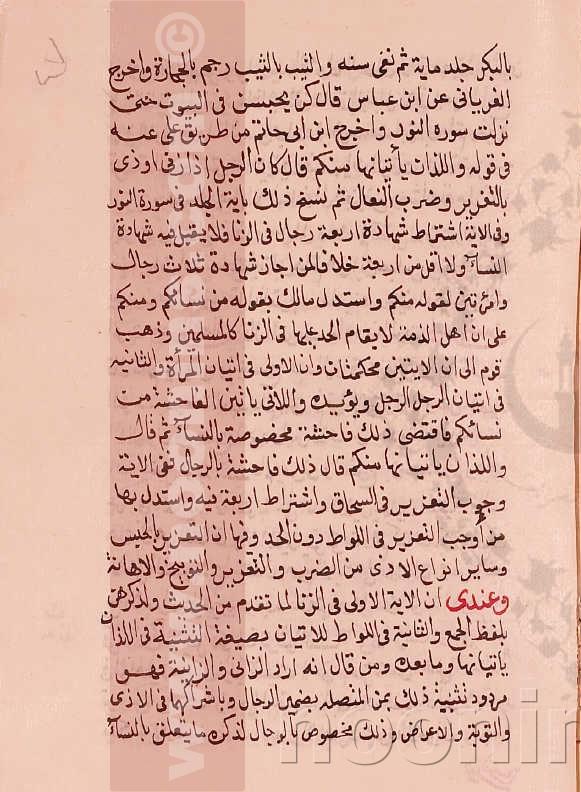 بالبكر جلد ماية ثم نفى سنه والثيب بالثيب رجم بالحجارة واخرج
الفريابى عن ابن عباس قال كن يحبسن فى البيوت حتى
نزلت سوره النور واخرج ابن ابى حاتم من طريق على عنه
فى قوله واللذان يأتيانها منكم قال كان الرجل اذا زنى اوذى
بالتعزير وضرب النعال ثم نسخ ذلك باية الجلد فى سورة النور
وفى الاية اشتراط شهادة اربعة رجال فى الزنا فلا يقبل فيه شهادة
النسآء ولا اقل من اربعة خلافا لمن اجاز شهادة ثلاث رجال
وامرءتين لقوله منكم واستدل مالك بقوله من نسائكم ومنكم
على ان اهل الذمة لا يقام الحد عليها فى الزنا كالمسلمين وذهب
قوم الى ان الايتين محكمتان وان الاولى فى اتيان المرأة والثانيه
فى اتيان الرجل الرجل ويؤيده واللاتى يأتين الفاحشة من
نسائكم فاقتضى ذلك فاحشة مخصوصة بالنسآء ثم قال
واللذان يأتيانها منكم قال ذلك فاحشة بالرجال ففى الاية
وجوب التعزير فى السحاق واشتراط اربعة فيه واستدل بها
من أوجب التعزير فى اللواط دون الحد وفيها ان التعزير بالحبس
وساير انواع الاذى من الضرب والتعزير والتوبيخ والاهانة
وعندى ان الاية الاولى فى الزنا لما تقدم من الحدث ولذكرهن
بلفظ الجمع والثانية فى اللواط للاتيان بصيغة التثنية فى اللذان
يأتيانها وما بعده ومن قال انه اراد الزانى والزانية فهو
مردود تثنية ذلك بمن المتصله بضمير الرجال وباشراكهما فى الاذى
والتوبة والاعراض وذلك مخصوص بالرجال لذكره ما يتعلق بالنسآء
noornin